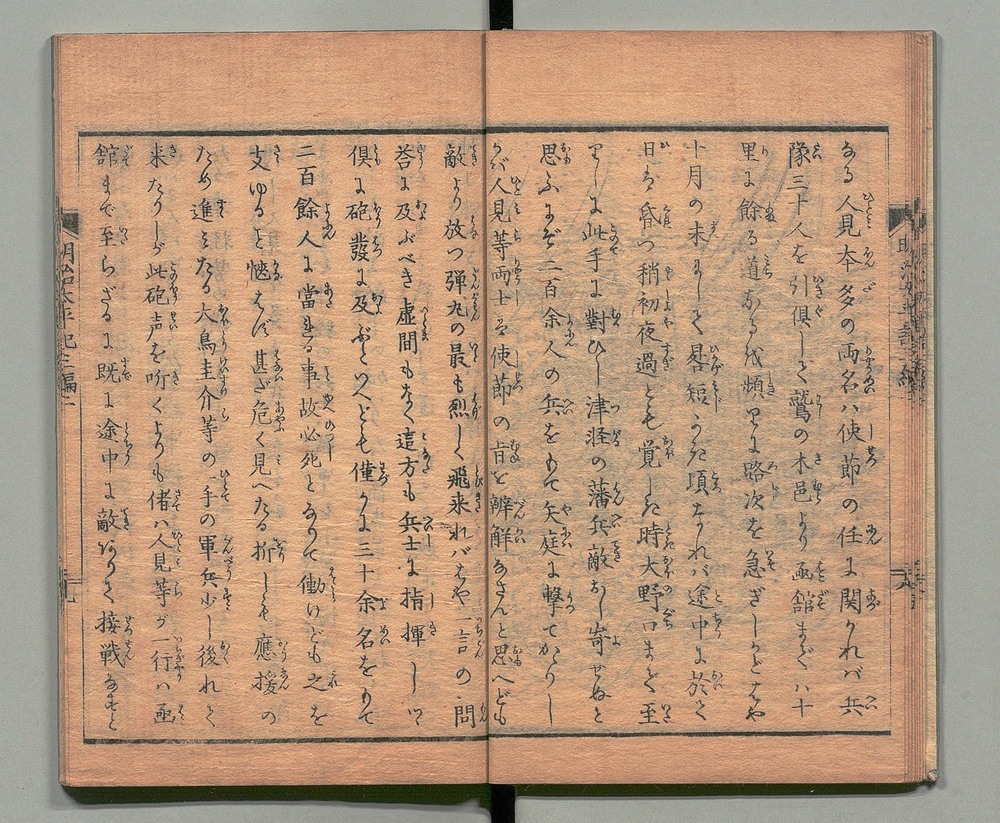 なる人見本多の両名ハ使節の任に関かれバ兵
隊三十人を引倶して鷲の木邑より函舘までハ十
里に餘る道なるを頻りに路次を急ぎしかどはや
十月の末にして晷短かき項なれバ途中に於て
日は昏つ稍初夜過とも覚しき時大野口まで至
りしに此手に對ひし津軽の藩兵敵なし寄せぬと
思ふにぞ二百余人の兵をもて矢庭に撃てかかりし
かバ人見等両士は使節の旨を辨解なさんと思へども
敵より放つ弾丸の最も烈しく飛来れバはや一言の問
荅に及ぶべき虚間もなく這方も兵士に指揮しツ
倶に砲發に及ぶといへども僅かに三十余名をもて
二百餘人に當る事故必死となりて働けども之を
支ゆること愜はず甚ざ危く見へたる折しも應援の
ため進ミたる大鳥圭介等の手の軍兵少し後れて
来たりしが此砲声を听くよりも偖ハ人見等が一行ハ函
舘まで至らざるに既に途中に敵ありて接戦なすと
明治太平記三編二